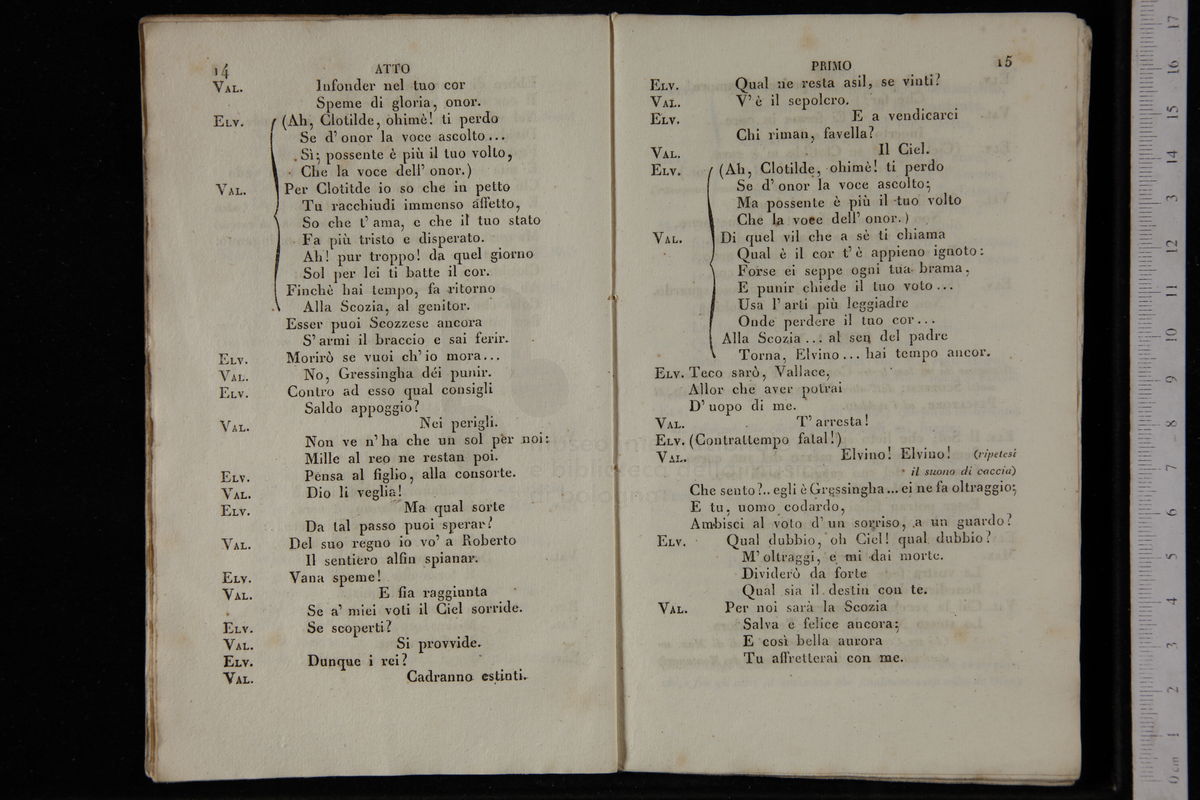 14 ATTO
VAL. Infonder nel tuo cor
Speme di gloria, onor.
ELV. (Ah, Clotilde, ohimè! ti perdo
Se d' onor la voce ascolto...
Sì; possente è più il tuo volto,
Che la voce dell' onor.)
VAL. Per Clotitde io so che in petto
Tu racchiudi immenso affetto,
So che t' ama, e che il tuo stato
Fa più tristo e disperato.
Ah! pur troppo! da quel giorno
Sol per lei ti batte il cor.
Finchè hai tempo, fa ritorno
Alla Scozia, al genitor.
Esser puoi Scozzese ancora
S' armi il braccio e sai ferir.
ELV. Morirò se vuoi ch' io mora...
VAL. No, Gressingha déi punir.
ELV. Contro ad esso qual consigli
Saldo appoggio?
VAL. Nei perigli.
Non ve n' ha che un sol per noi:
Mille al reo ne restan poi.
ELV. Pensa al figlio, alla consorte.
VAL. Dio li veglia!
ELV. Ma qual sorte
Da tal passo puoi sperar?
VAL. Del suo regno io vo' a Roberto
Il sentiero alfin spianar.
ELV. Vana speme!
VAL. E fia raggiunta
Se a' miei voti il Ciel sorride.
ELV. Se scoperti?
VAL. Si provvide.
ELV. Dunque i rei?
VAL. Cadranno estinti.
PRIMO 15
ELV. Qual ne resta asil, se vinti?
VAL. V' è il sepolcro.
ELV. E a vendicarci
Chi riman, favella?
VAL. Il Ciel.
ELV. (Ah, Clotilde, ohimè! ti perdo
Se d' onor la voce ascolto;
Ma possente è più il tuo volto
Che la voce dell' onor.)
VAL. Di quel vil che a sè ti chiama
Qual è il cor t' è appieno ignoto:
Forse ei seppe ogni tua brama,
E punir chiede il tuo voto...
Usa l' arti più leggiadre
Onde perdere il tuo cor...
Alla Scozia... al sen del padre
Torna, Elvino... hai tempo ancor.
ELV. Teco sarò, Vallace,
Allor che aver potrai
D' uopo di me.
VAL. T' arresta!
ELV. (Contrattempo fatal!)
VAL. Elvino! Elvino! (ripetesi
il suono di caccia)
Che sento?.. egli è Gressingha... ei ne fa oltraggio;
E tu, uomo codardo,
Ambisci al voto d' un sorriso, a un guardo?
ELV. Qual dubbio, oh Ciel! qual dubbio?
M' oltraggi, e mi dai morte.
Dividerò da forte
Qual sia il destin con te.
VAL. Per noi sarà la Scozia
Salva e felice ancora;
E così bella aurora
Tu affretterai con me.